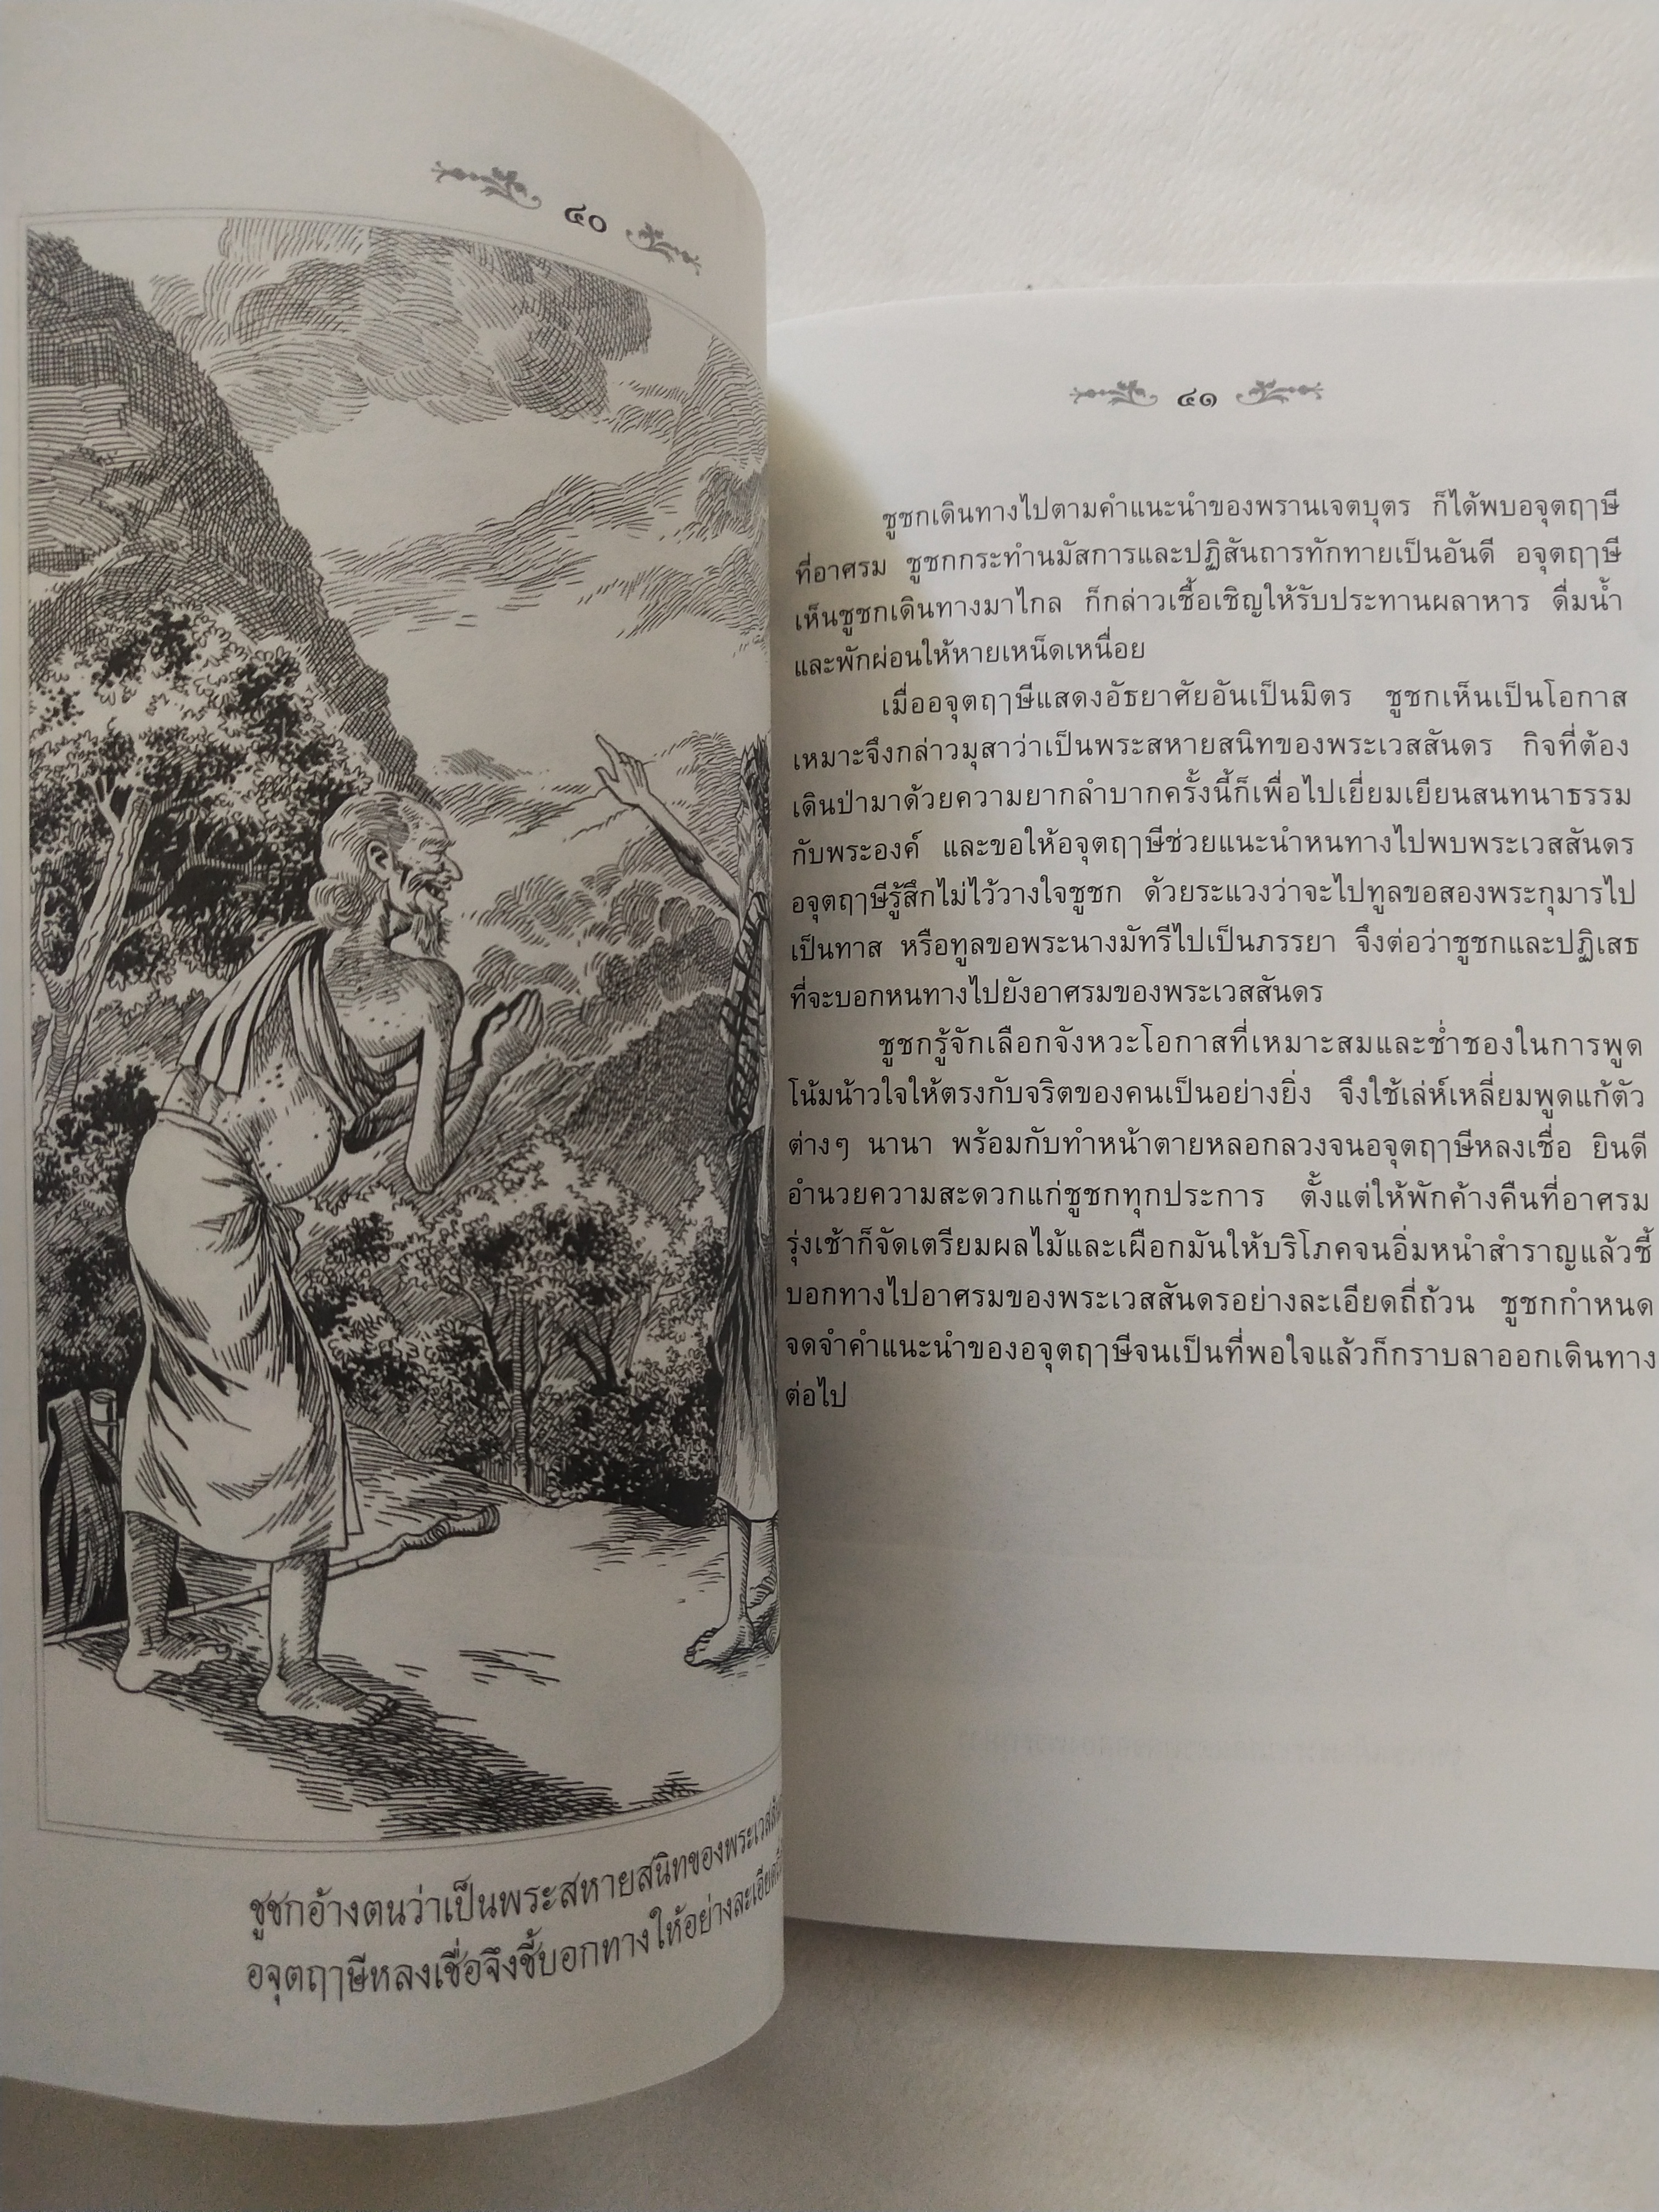 ๔๐
ชูชกอ้างตนว่าเป็นพระสหายสนิทของพระเวสสัน
อจุตฤๅษีหลงเชื่อจึงชี้บอกทางให้อย่างละเอียด
๔๑
ชูชกเดินทางไปตามคำแนะนำของพรานเจตบุตร ก็ได้พบอจุตฤๅษี
ที่อาศรม ชูชกกระทำนมัสการและปฏิสันถารทักทายเป็นอันดี อจุตฤๅษี
เห็นชูชกเดินทางมาไกล ก็กล่าวเชื้อเชิญให้รับประทานผลาหาร ดื่มน้ำ
และพักผ่อนให้หายเหน็ดเหนื่อย
เมื่ออจุตฤๅษีแสดงอัธยาศัยอันเป็นมิตร ชูชกเห็นเป็นโอกาส
เหมาะจึงกล่าวมุสาว่าเป็นพระสหายสนิทของพระเวสสันดร กิจที่ต้อง
เดินป่ามาด้วยความยากลำบากครั้งนี้ก็เพื่อไปเยี่ยมเยียนสนทนาธรรม
กับพระองค์ และขอให้อจุตฤๅษีช่วยแนะนำหนทางไปพบพระเวสสันดร
อจุตฤๅษีรู้สึกไม่ไว้วางใจชูชก ด้วยระแวงว่าจะไปทูลขอสองพระกุมารไป
เป็นทาส หรือทูลขอพระนางมัทรีไปเป็นภรรยา จึงต่อว่าชูชกและปฏิเสธ
ที่จะบอกหนทางไปยังอาศรมของพระเวสสันดร
ชูชกรู้จักเลือกจังหวะโอกาสที่เหมาะสมและช่ำชองในการพูด
โน้มน้าวใจให้ตรงกับจริตของคนเป็นอย่างยิ่ง จึงใช้เล่ห์เหลี่ยมพูดแก้ตัว
ต่างๆ นานา พร้อมกับทำหน้าตายหลอกลวงจนอจุตฤๅษีหลงเชื่อ ยินดี
อำนวยความสะดวกแก่ชูชกทุกประการ ตั้งแต่ให้พักค้างคืนที่อาศรม
รุ่งเช้าก็จัดเตรียมผลไม้และเผือกมันให้บริโภคจนอิ่มหนำสำราญแล้วชี้
บอกทางไปอาศรมของพระเวสสันดรอย่างละเอียดถี่ถ้วน ชูชกกำหนด
จดจำคำแนะนำของอจุตฤๅษีจนเป็นที่พอใจแล้วก็กราบลาออกเดินทาง
ต่อไป